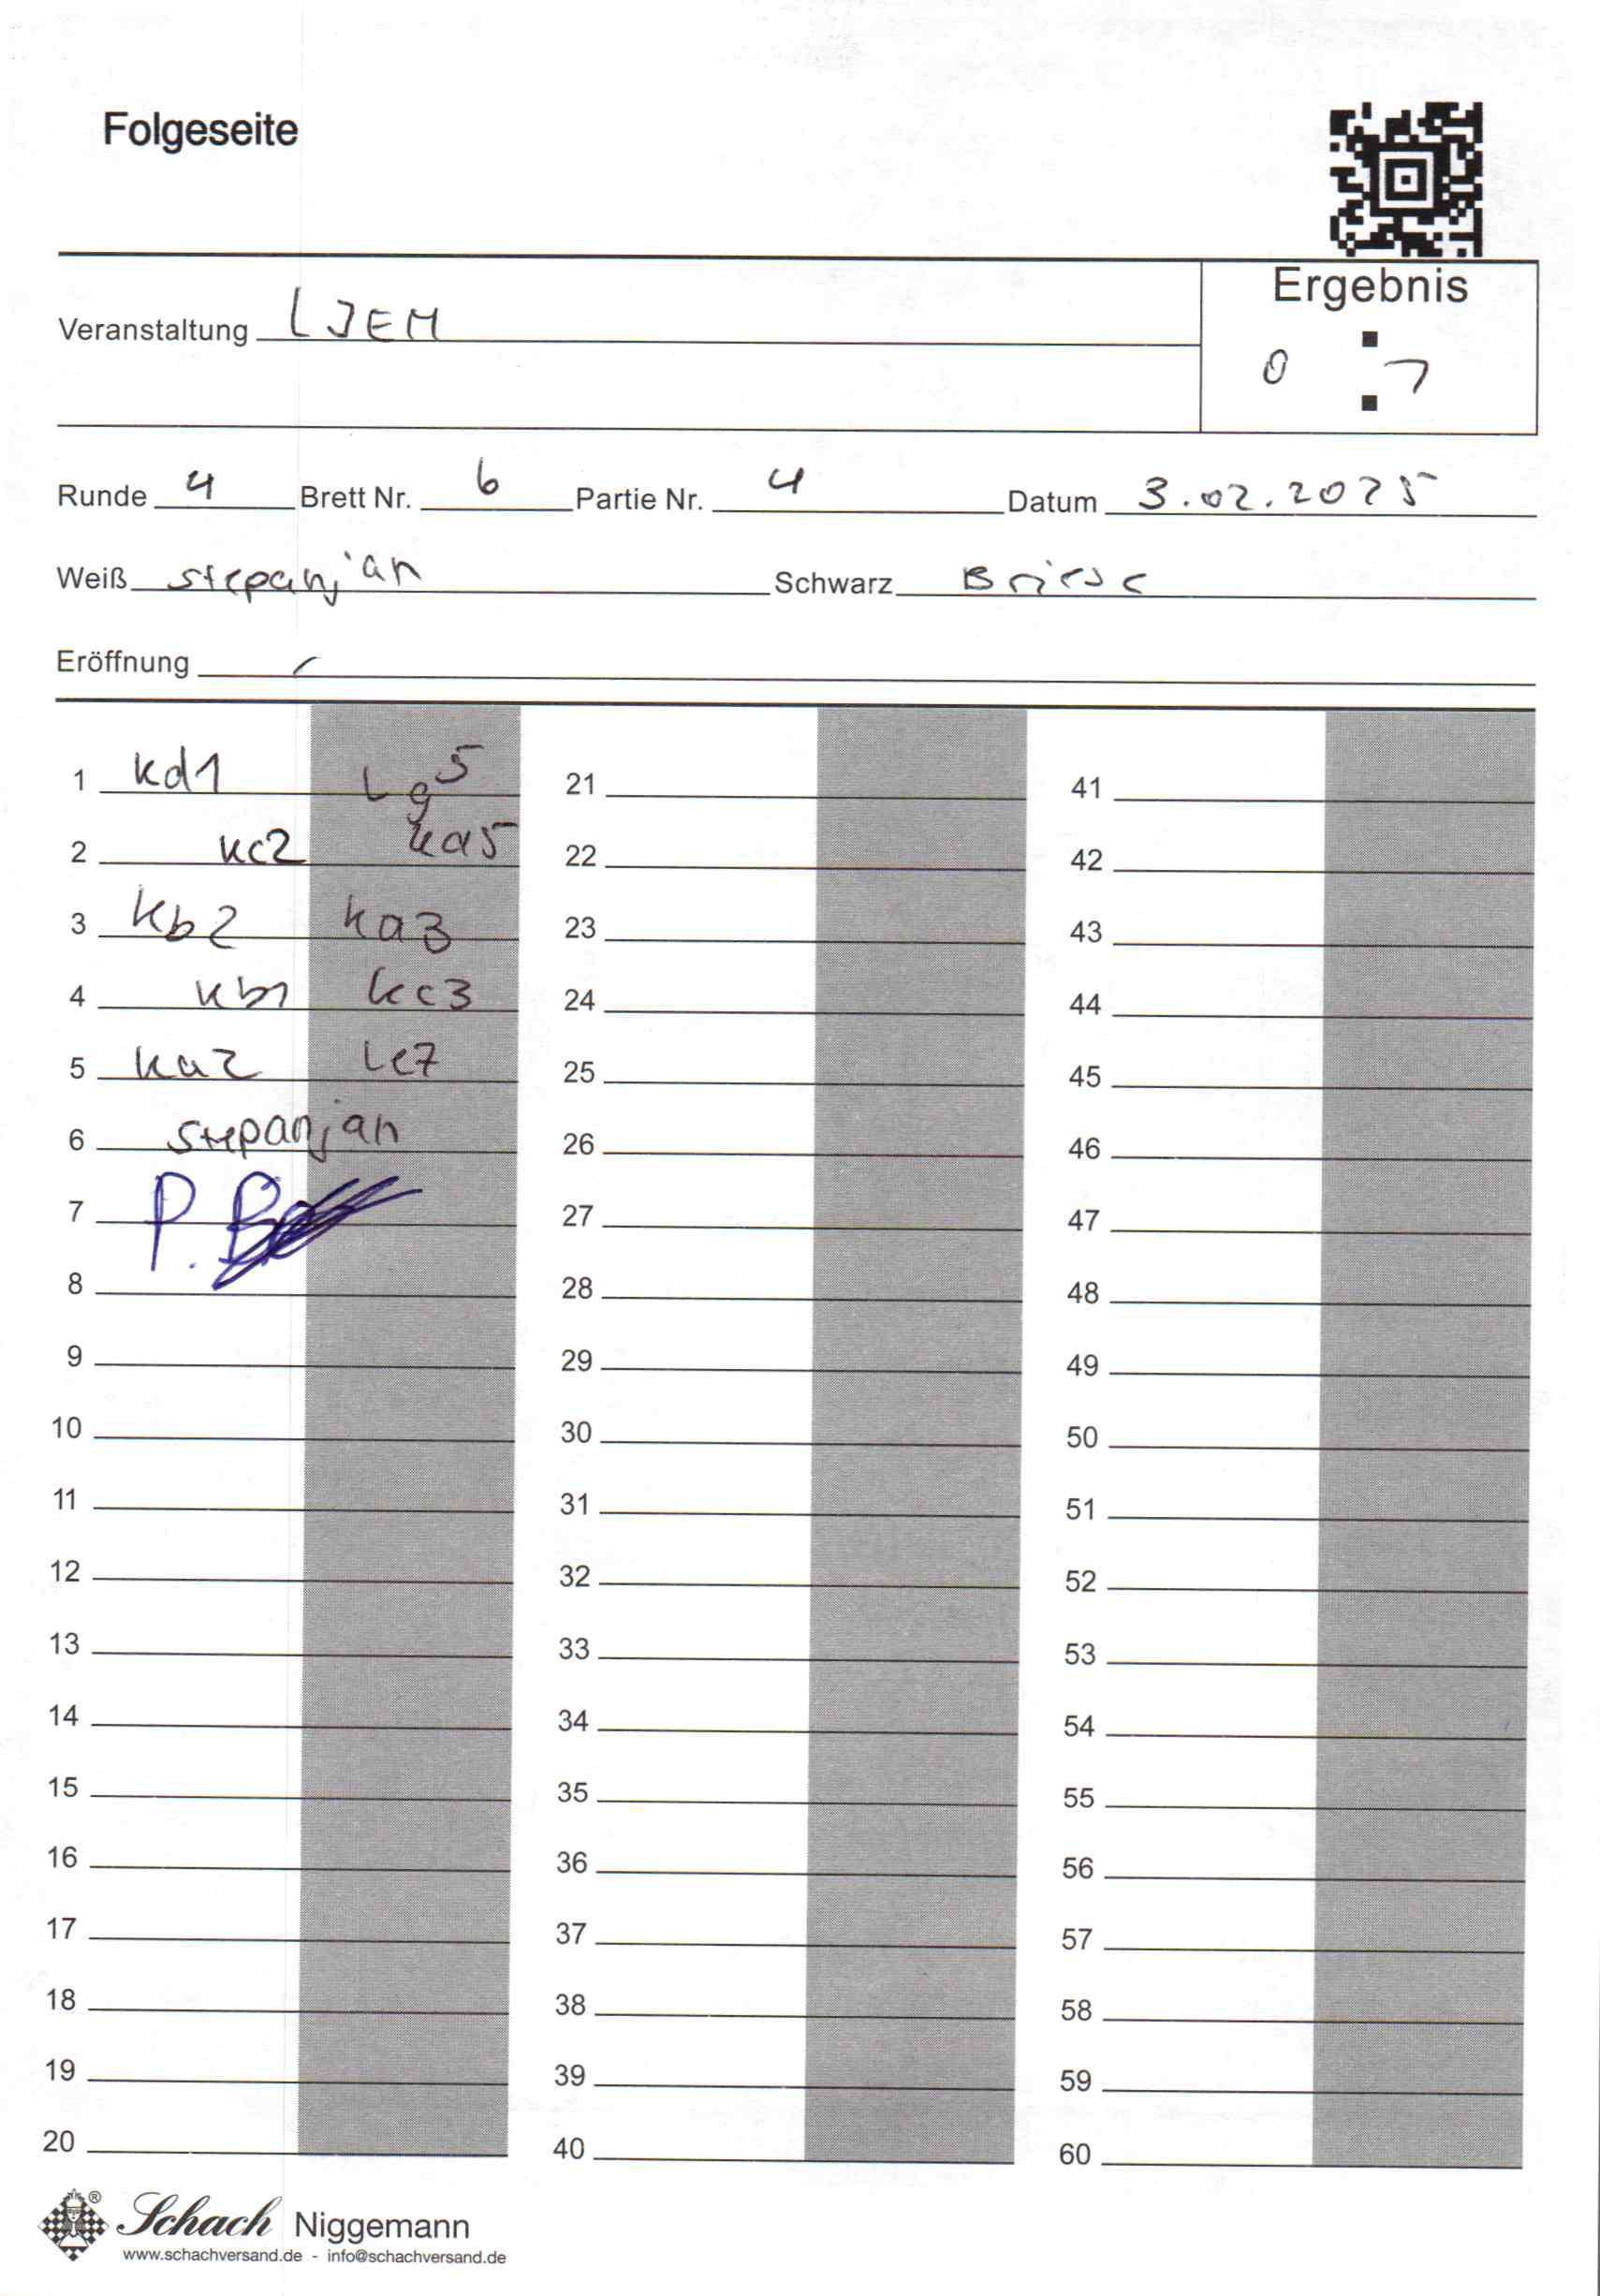 Folgeseite
Ergebnis
Veranstaltung LJEM
0 : 1
Runde 4 Brett Nr. 6 Partie Nr. 4 Datum 3.02.2025
Weiß Stepanjan Schwarz Briese
Eröffnung
1 Kd1 Lg5 21 41
2 Kc2 Ka5 22 42
3 Kb2 Ka3 23 43
4 Kb1 Kc3 24 44
5 Ka2 Le7 25 45
6 Stepanjan 26 46
7 P. 27 47
8 28 48
9 29 49
10 30 50
11 31 51
12 32 52
13 33 53
14 34 54
15 35 55
16 36 56
17 37 57
18 38 58
19 39 59
20 40 60
® Schach Niggemann
www.schachversand.de - info@schachversand.de